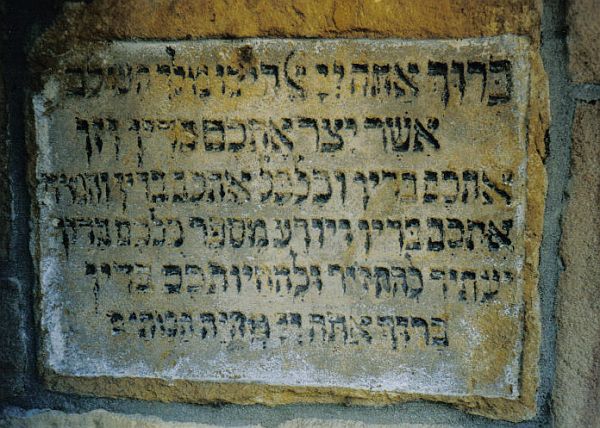 ברוך אתה יי אלהינו מלך העולם
אשר יצר אתכם בדין וזן
אתכם בדין וכלכל אתכם בדין והמית
אתכם בדין ויודע מספר כלכם בדין
יעתיד להחזיר ולהחיותכם בדין
ברוך אתה יי מחיה המתים